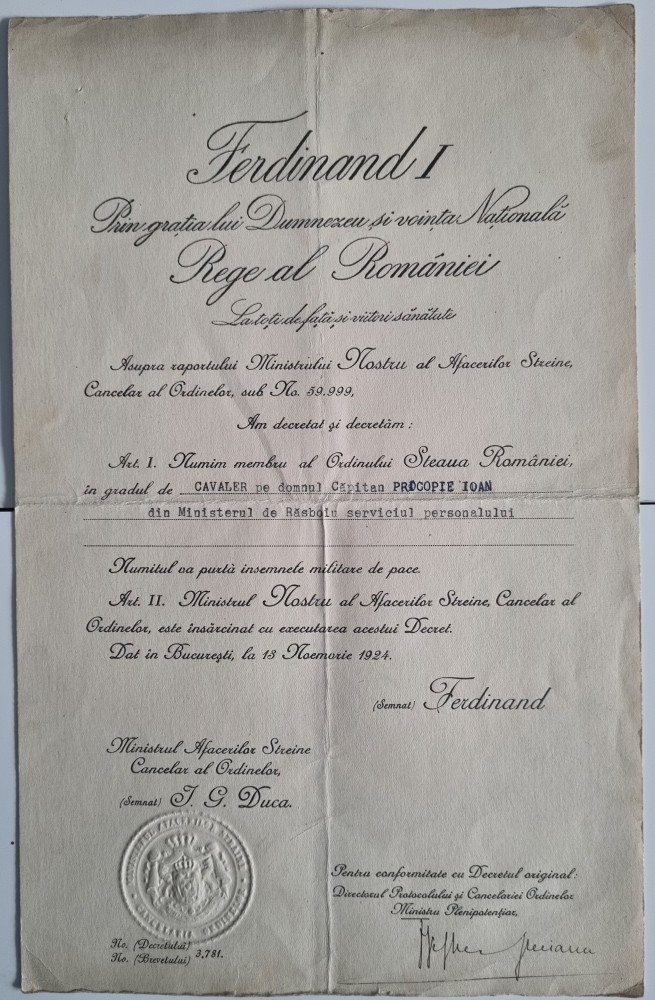 Ferdinand I
Prin grația lui Dumnezeu și voința Națională
Rege al României
La toți de față și viitori sănătate
Asupra raportului Ministrului Nostru al Afacerilor Streine,
Cancelar al Ordinelor, sub No. 59.999,
Am decretat și decretăm :
Art. I. Numim membru al Ordinului Steaua României,
în gradul de CAVALER pe domnul Căpitan PROCOPIE IOAN
din Ministerul de Răsboiu serviciul personalului
Numitul va purtà insemnele militare de pace.
Art. II. Ministrul Nostru al Afacerilor Streine, Cancelar al
Ordinelor, este însărcinat cu executarea acestui Decret.
Dat în București, la 13 Noemorie 1924.
(Semnat) Ferdinand
Ministrul Afacerilor Streine
Cancelar al Ordinelor,
(Semnat) I. G. Duca.
MINISTERUL AFACERILOR STREINE
CANCELARIA ORDINELOR
Pentru conformitate cu Decretul original:
Directorul Protocolului și Cancelariei Ordinelor
Ministru Plenipotențiar,
No. (Decretului)
No. (Brevetului) 3.781.